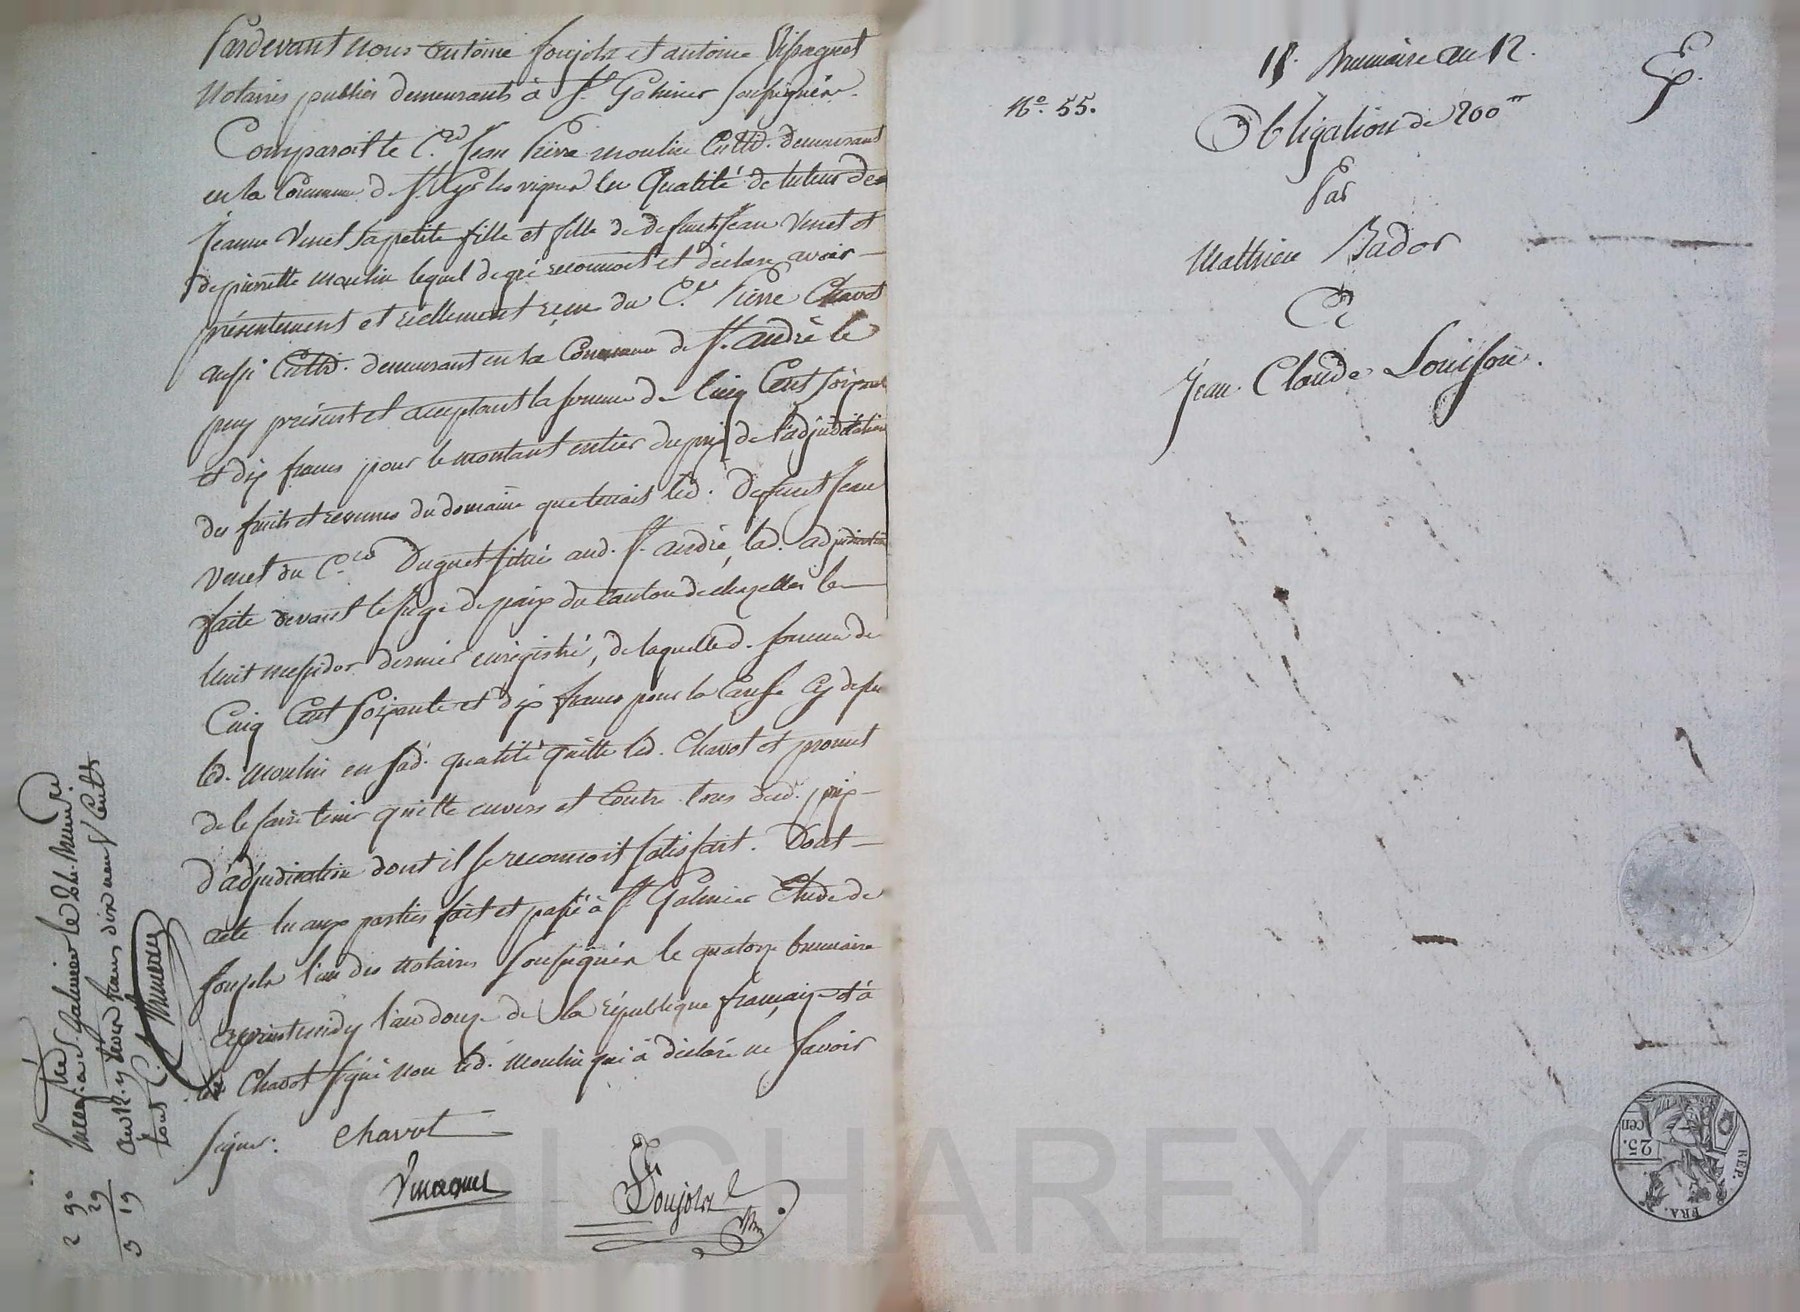 Pardevant Nous antoine foujols et antoine
Notaires publics demeurants à St. Galmier soussignés.
Comparoit le C.en Jean Pierre moulin Cultiv. demeurant
en la Commune de St. Cyr les vignes en Qualité de tuteur de
Jeanne Venet sa petite fille et fille de defunts Jean Venet et
de pierrette moulin lequel de gré reconnoit et déclare avoir
présentement et réellement reçu du C.en Pierre Chavot
aussi Cultiv. demeurant en la Commune de St. andré le
puy présent et acceptant la somme de Cinq Cent soixante
et dix francs pour le montant entier du prix de l'adjudication
des fruits et revenus du domaine que tenait led. Defunt Jean
Venet du C.en Duguet situé aud. St. andré, lad. adjudication
faite devant le juge de paix du Canton de chazelles le
huit messidor dernier enregistré, de laquelle d. somme de
Cinq Cent soixante et dix francs pour la Cause Cy dessus
led. moulin en sad. qualité quitte led. Chavot et promet
de le faire tenir quitte envers et Contre tous dud. prix
d'adjudication dont il se reconnoit satisfait. Dont
acte lu aux parties fait et passé à St. Galmier Etude de
foujols l'un des notaires soussignés le quatorze brumaire
l'an douze de la république française et à
led. Chavot signé non led. moulin qui a déclaré ne savoir
signer. Chavot
Foujols
Enreg. à St. Galmier le 24. Brumaire
an 12. trois francs dix neuf Cent.
2 90
29
3 19
15. Brumaire an 12.
N.o 55.
Obligation de 200 tt
Par
Mathieu Bador
A
Jean Claude Louison.
REP. FRA.
25. cen
scal CHAREYRON